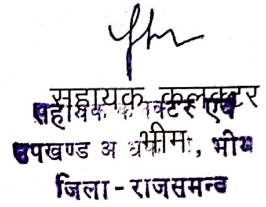 सहायक कलक्टर
सहायक क क्टर एवं
भीम
उपखण्ड अ धक , भीम
जिला - राजसमन्द